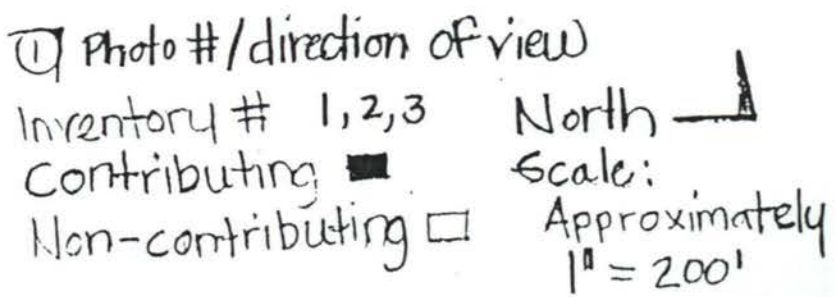 ① Photo #/direction of view
Inventory # 1,2,3
Contributing
Non-contributing
North
Scale:
Approximately
1" = 200'